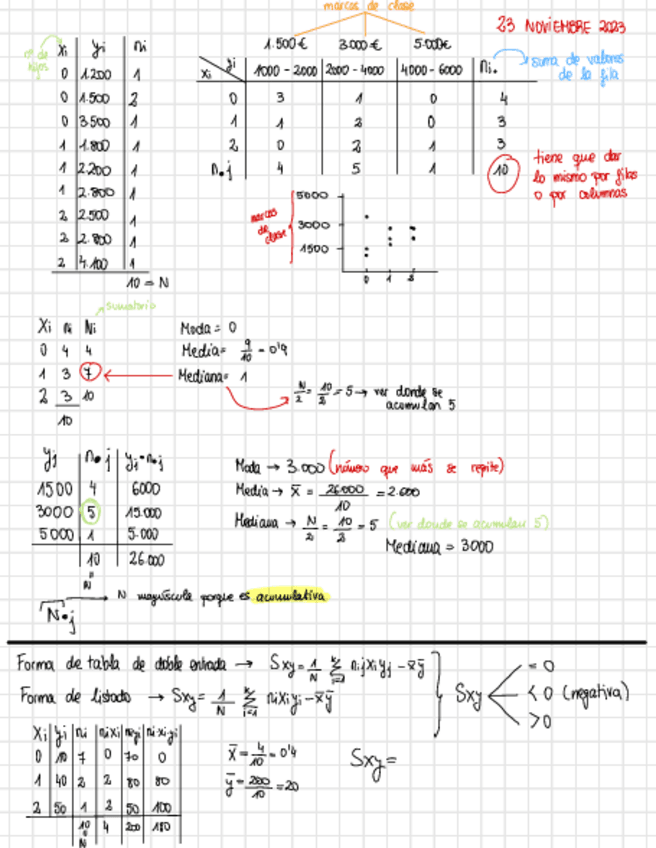 marcas de clase
23 NOVIEMBRE 2023
nº de hijos
xi yi ni
0 1.200 1
0 1.500 2
0 3.500 1
1 1.800 1
1 2.200 1
1 2.800 1
2 2.500 1
2 2.800 1
2 4.100 1
10 = N
1.500€ 3000€ 5.000€
xi yi 1000-2000 2000-4000 4000-6000 ni.
0 3 1 0 4
1 1 2 0 3
2 0 2 1 3
n.j 4 5 1 10
suma de valores de la fila
tiene que dar
lo mismo por filas
o por columnas
marcas de clase
5000
3000
1500
0 1 2
sumatorio
Xi ni Ni
0 4 4
1 3 7
2 3 10
10
Moda = 0
Media = 9/10 = 0'9
Mediana = 1
N/2 = 10/2 = 5 → ver donde se
acumulan 5
yj n.j yj·n.j
1500 4 6000
3000 5 15.000
5000 1 5.000
10 26.000
N
Moda → 3.000 (número que más se repite)
Media → x̄ = 26000/10 = 2.600
Mediana → N/2 = 10/2 = 5 (ver donde se acumulan 5)
Mediana = 3000
N mayúscula porque es acumulativa
N.j
Forma de tabla de doble entrada → Sxy = 1/N Σ i=1 nij xi yj - x̄ȳ
Forma de listado → Sxy = 1/N Σ i=1 ni xi yi - x̄ȳ
Sxy
= 0
< 0 (negativa)
> 0
Xi yi ni nixi niyi nixiyi
0 10 7 0 70 0
1 40 2 2 80 80
2 50 1 2 50 100
10 4 200 180
N
x̄ = 4/10 = 0'4
ȳ = 200/10 = 20
Sxy =